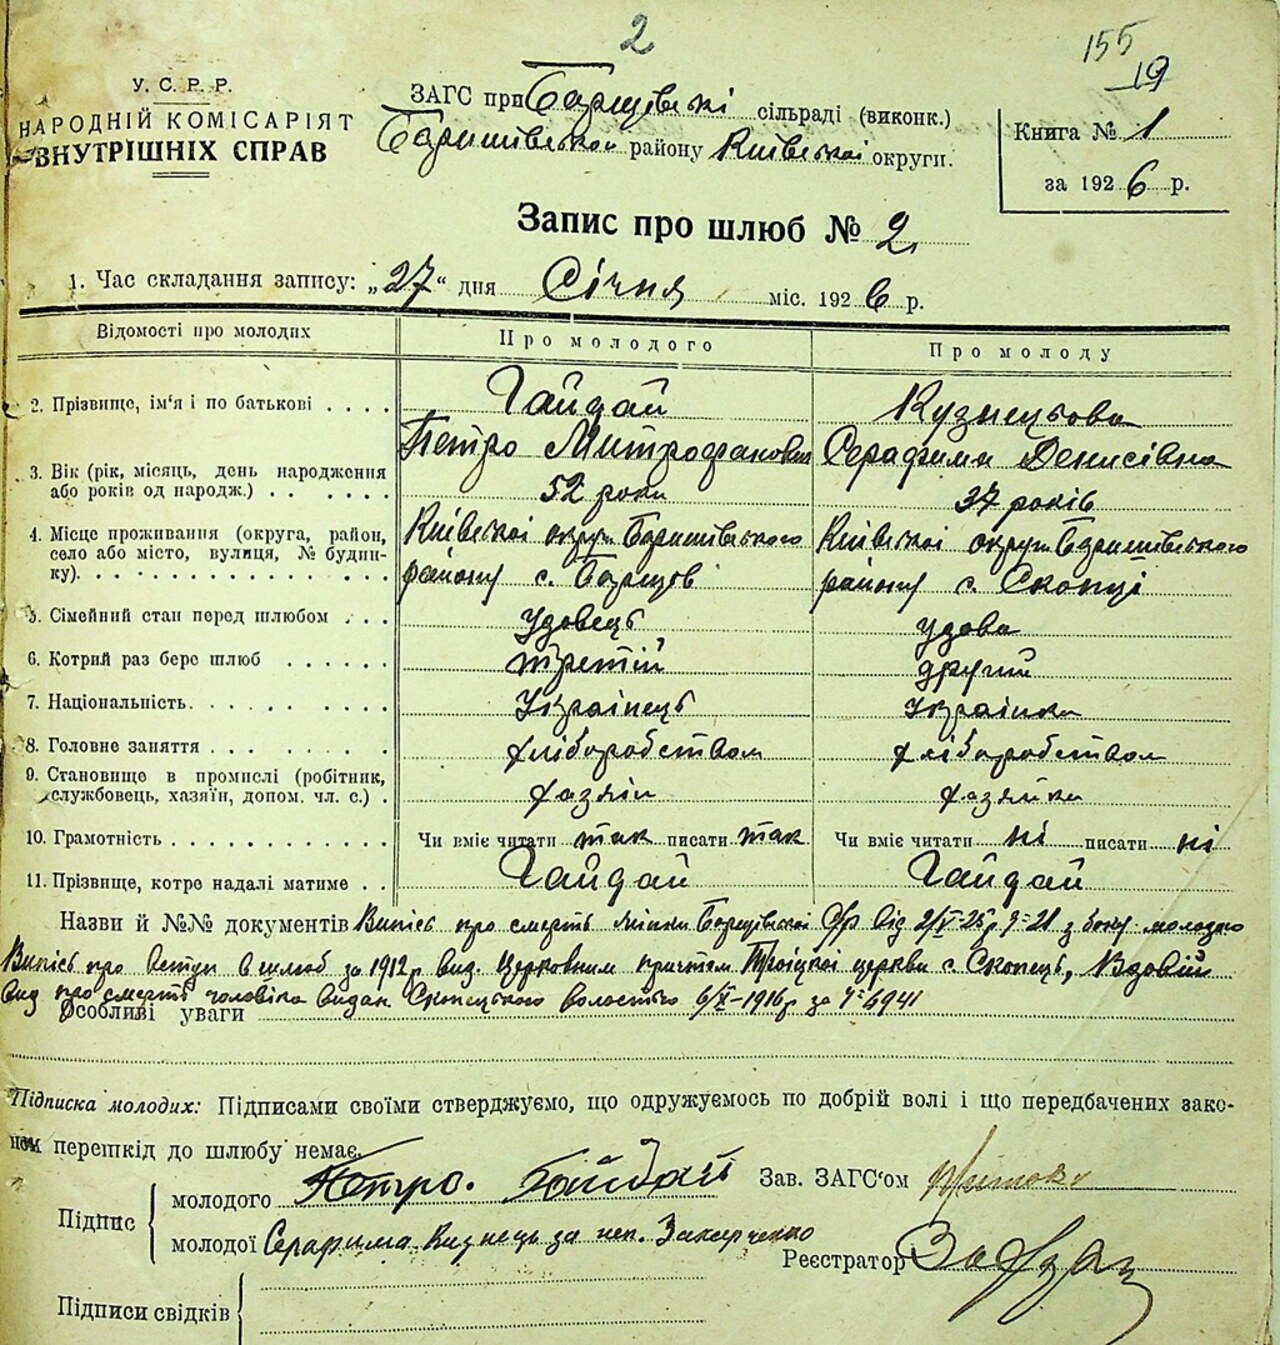 2
155
19
У. С. Р. Р.
НАРОДНІЙ КОМІСАРІЯТ
ВНУТРІШНІХ СПРАВ
ЗАГС при Борщівські сільраді (виконк.)
Баришівської району Київської округи.
Книга № 1
за 1926 р.
Запис про шлюб № 2
1. Час складання запису: „27“ дня Січня міс. 1926 р.
Відомості про молодих
Про молодого
Про молоду
2. Прізвище, ім'я і по батькові
Гайдай
Петро Митрофанович
Кузнецьова
Серафима Денисівна
3. Вік (рік, місяць, день народження
або років од народж.)
52 роки
37 років
4. Місце проживання (округа, район,
село або місто, вулиця, № будин-
ку).
Київської округи Баришівського
району с. Борщів
Київської округи Баришівського
району с. Скопці
5. Сімейний стан перед шлюбом
Удовець
удова
6. Котрий раз бере шлюб
третій
другий
7. Національність.
Українець
Українка
8. Головне заняття
хліборобством
хліборобством
9. Становище в промислі (робітник,
службовець, хазяїн, допом. чл. с.)
хазяїн
хазяйка
10. Грамотність
Чи вміє читати так писати так
Чи вміє читати ні писати ні
11. Прізвище, котре надалі матиме
Гайдай
Гайдай
Назви й №№ документів Випісь про смерть жінки Борщівської с/р від 2/V-25 р № 21 з боку молодого
Випісь про вступ в шлюб за 1912 р вид. Церковним причтом Троіцкої церкви с. Скопець, Вдовій
вид про смерть чоловіка видан Скопецького волостью 6/X-1916 р за № 6941
Особливі уваги
Підписка молодих: Підписами своїми стверджуємо, що одружуємось по добрій волі і що передбачених зако-
ном перешкід до шлюбу немає.
Підпис
молодого Петро. Гайдай
молодої Серафима Кузнець за неп. Захарченко
Зав. ЗАГС'ом
Реєстратор
Підписи свідків